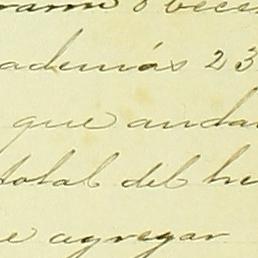 ademas 23
que anda
total del
e agregar